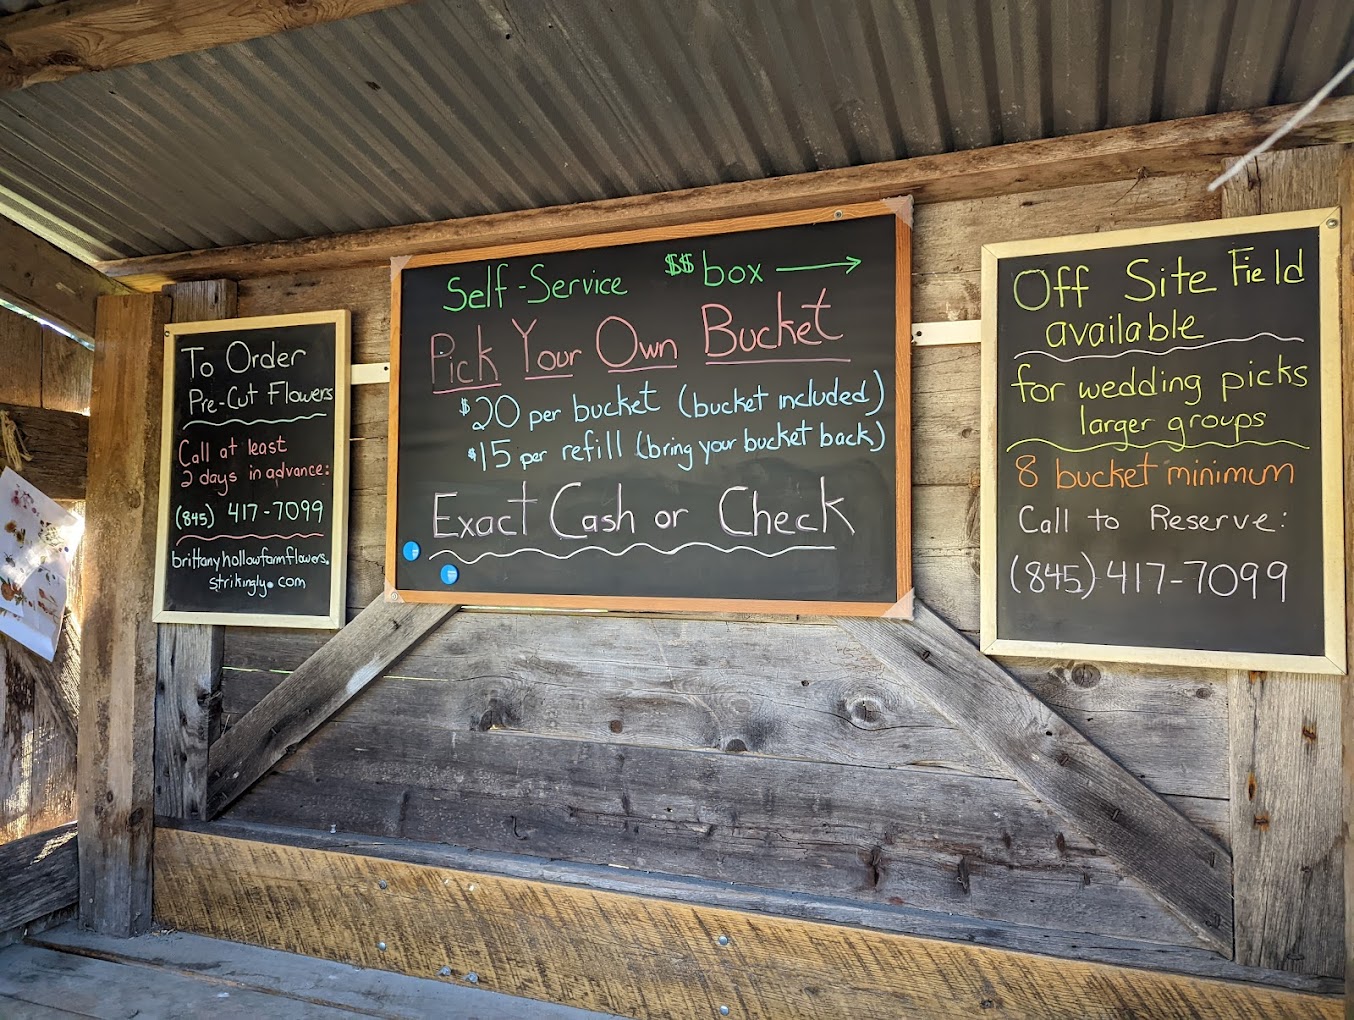 To Order
Pre-Cut Flowers
Call at least
2 days in advance:
(845) 417-7099
brittanyhollowfarmflowers.
strikingly.com
Self-Service $$ box →
Pick Your Own Bucket
$20 per bucket (bucket included)
$15 per refill (bring your bucket back)
Exact Cash or Check
Off Site Field
available
for wedding picks
larger groups
8 bucket minimum
Call to Reserve:
(845) 417-7099